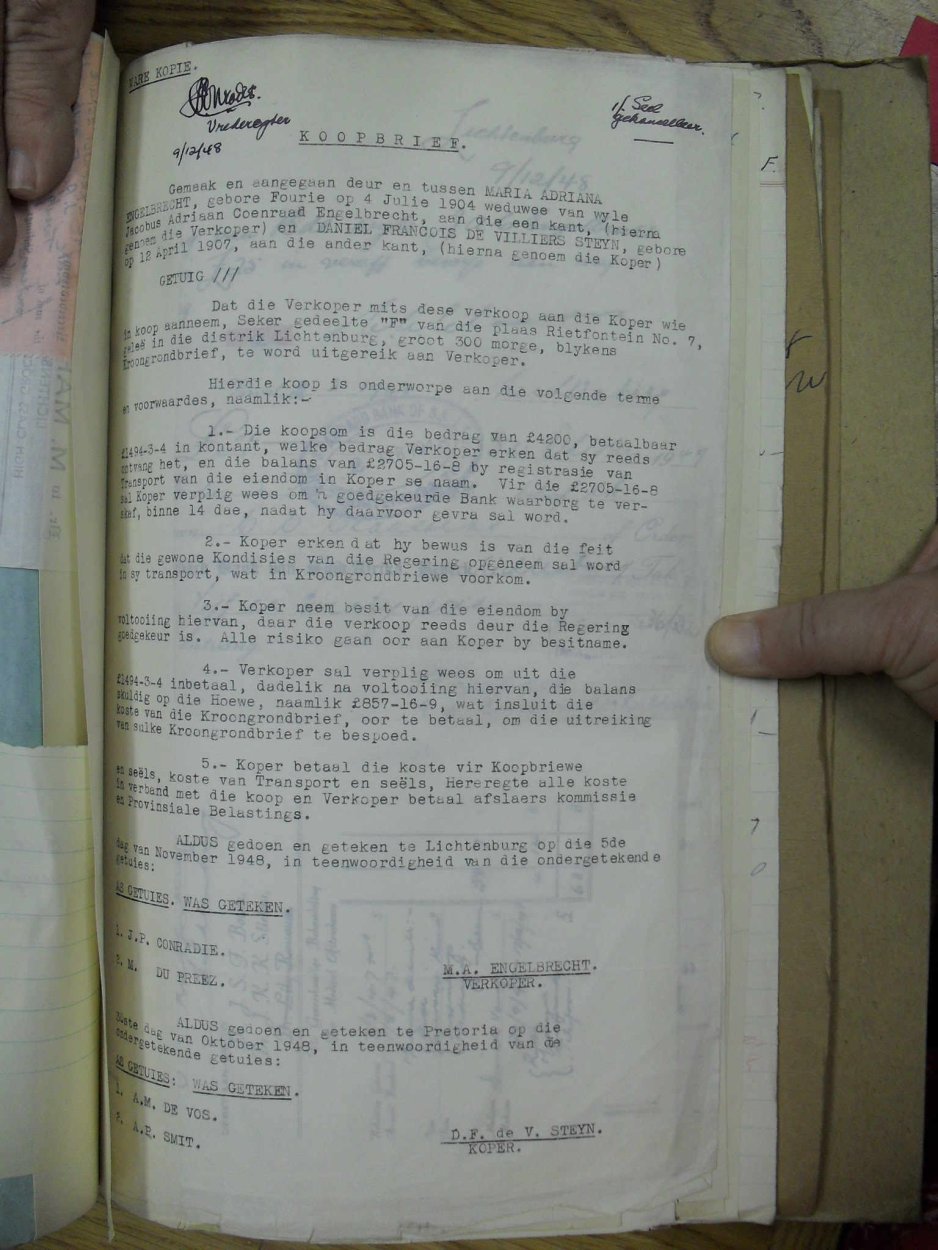 WARE KOPIE.
Vrederegter
9/12/48
1/- Seël
gekanselleer.
KOOPBRIEF.
Lichtenburg
9/12/48
Gemaak en aangegaan deur en tussen MARIA ADRIANA
ENGELBRECHT, gebore Fourie op 4 Julie 1904 weduwee van wyle
Jacobus Adriaan Coenraad Engelbrecht, aan die een kant, (hierna
genoem die Verkoper) en DANIEL FRANCOIS DE VILLIERS STEYN, gebore
op 12 April 1907, aan die ander kant, (hierna genoem die Koper)
GETUIG ///
Dat die Verkoper mits dese verkoop aan die Koper wie
in koop aanneem, Seker gedeelte "F" van die plaas Rietfontein No. 7,
geleë in die distrik Lichtenburg, groot 300 morge, blykens
Kroongrondbrief, te word uitgereik aan Verkoper.
Hierdie koop is onderworpe aan die volgende terme
en voorwaardes, naamlik:-
1.- Die koopsom is die bedrag van £4200, betaalbaar
£1494-3-4 in kontant, welke bedrag Verkoper erken dat sy reeds
ontvang het, en die balans van £2705-16-8 by registrasie van
Transport van die eiendom in Koper se naam. Vir die £2705-16-8
sal Koper verplig wees om 'n goedgekeurde Bank waarborg te ver-
skaf, binne 14 dae, nadat hy daarvoor gevra sal word.
2.- Koper erken dat hy bewus is van die feit
dat die gewone Kondisies van die Regering opgeneem sal word
in sy transport, wat in Kroongrondbriewe voorkom.
3.- Koper neem besit van die eiendom by
voltooiing hiervan, daar die verkoop reeds deur die Regering
goedgekeur is. Alle risiko gaan oor aan Koper by besitname.
4.- Verkoper sal verplig wees om uit die
£1494-3-4 inbetaal, dadelik na voltooiing hiervan, die balans
skuldig op die Hoewe, naamlik £857-16-9, wat insluit die
koste van die Kroongrondbrief, oor te betaal, om die uitreiking
van sulke Kroongrondbrief te bespoed.
5.- Koper betaal die koste vir Koopbriewe
en seëls, koste van Transport en seëls, Hereregte alle koste
in verband met die koop en Verkoper betaal afslaers kommissie
en Provinsiale Belastings.
ALDUS gedoen en geteken te Lichtenburg op die 5de
dag van November 1948, in teenwoordigheid van die ondergetekende
getuies:
AS GETUIES. WAS GETEKEN.
1. J.P. CONRADIE.
2. M. DU PREEZ.
M.A. ENGELBRECHT.
VERKOPER.
ALDUS gedoen en geteken te Pretoria op die
30ste dag van Oktober 1948, in teenwoordigheid van die
ondergetekende getuies:
AS GETUIES: WAS GETEKEN.
1. A.M. DE VOS.
2. A.R. SMIT.
D.F. de V. STEYN.
KOPER.